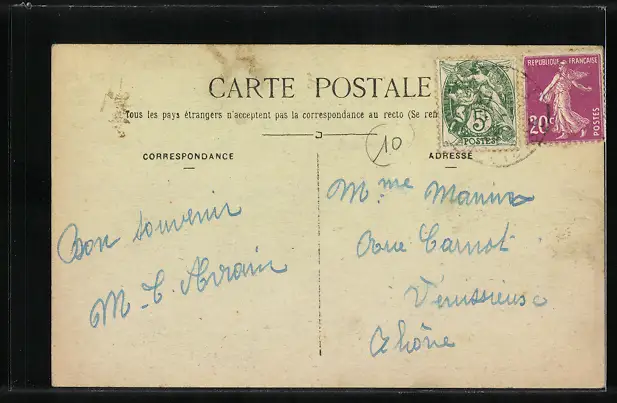 CARTE POSTALE
Tous les pays étrangers n'acceptent pas la correspondance au recto (Se ren
5
POSTES
REPUBLIQUE FRANÇAISE
20c
POSTES
10
CORRESPONDANCE
ADRESSE
Bon souvenir
M. C.
Mme
Rue Carnot
Vénissieux
Rhône